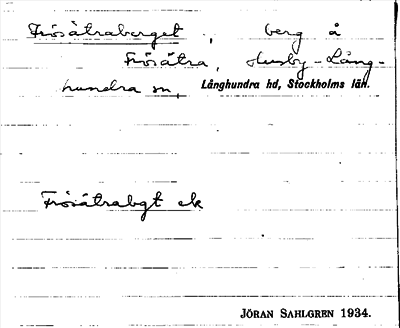 Frösåtraberget, berg å
Frösåtra, Husby-Lång-
hundra sn, Långhundra hd, Stockholms län.
Frösåtrabgt ek
JÖRAN SAHLGREN 1934.